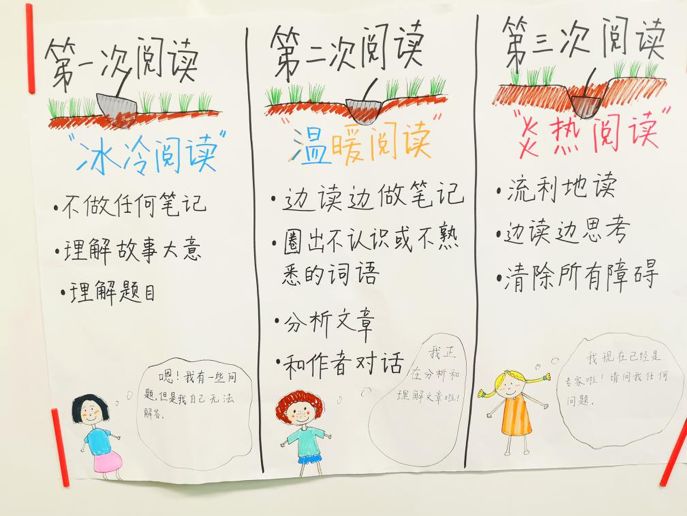 第一次阅读
"冰冷阅读"
·不做任何笔记
·理解故事大意
·理解题目
嗯！我有一些问
题，但是我自己无法
解答。
第二次阅读
"温暖阅读"
·边读边做笔记
·圈出不认识或不熟
悉的词语
·分析文章
·和作者对话
我正
在分析和
理解文章啦！
第三次阅读
"火热阅读"
·流利地读
·边读边思考
·清除所有障碍
我现在已经是
专家啦！请问我任何
问题。